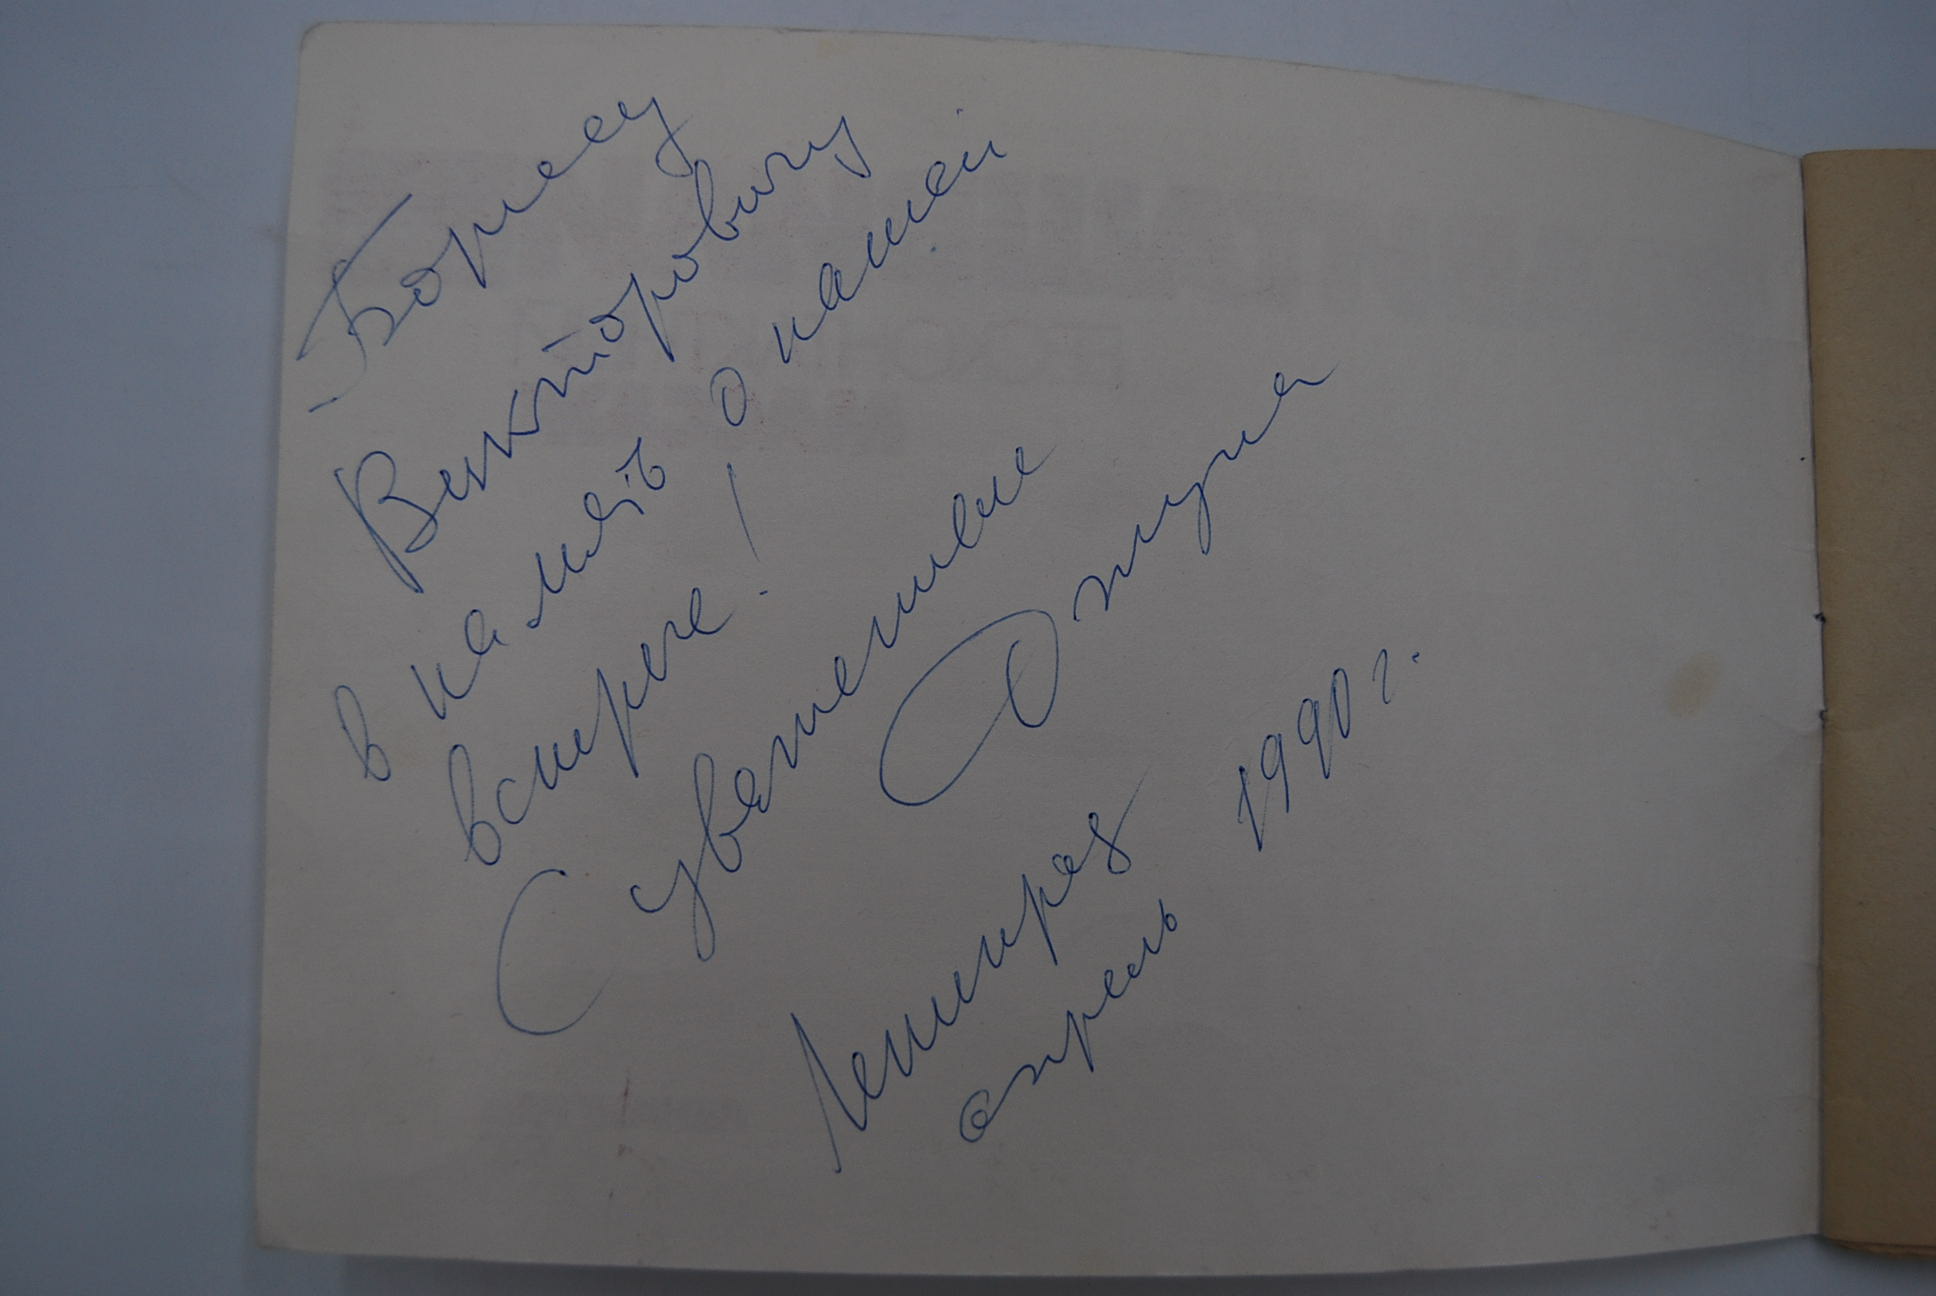 Борису
Викторовичу
в память о нашей
встрече!
С уважением
Ленинград
апрель 1990 г.